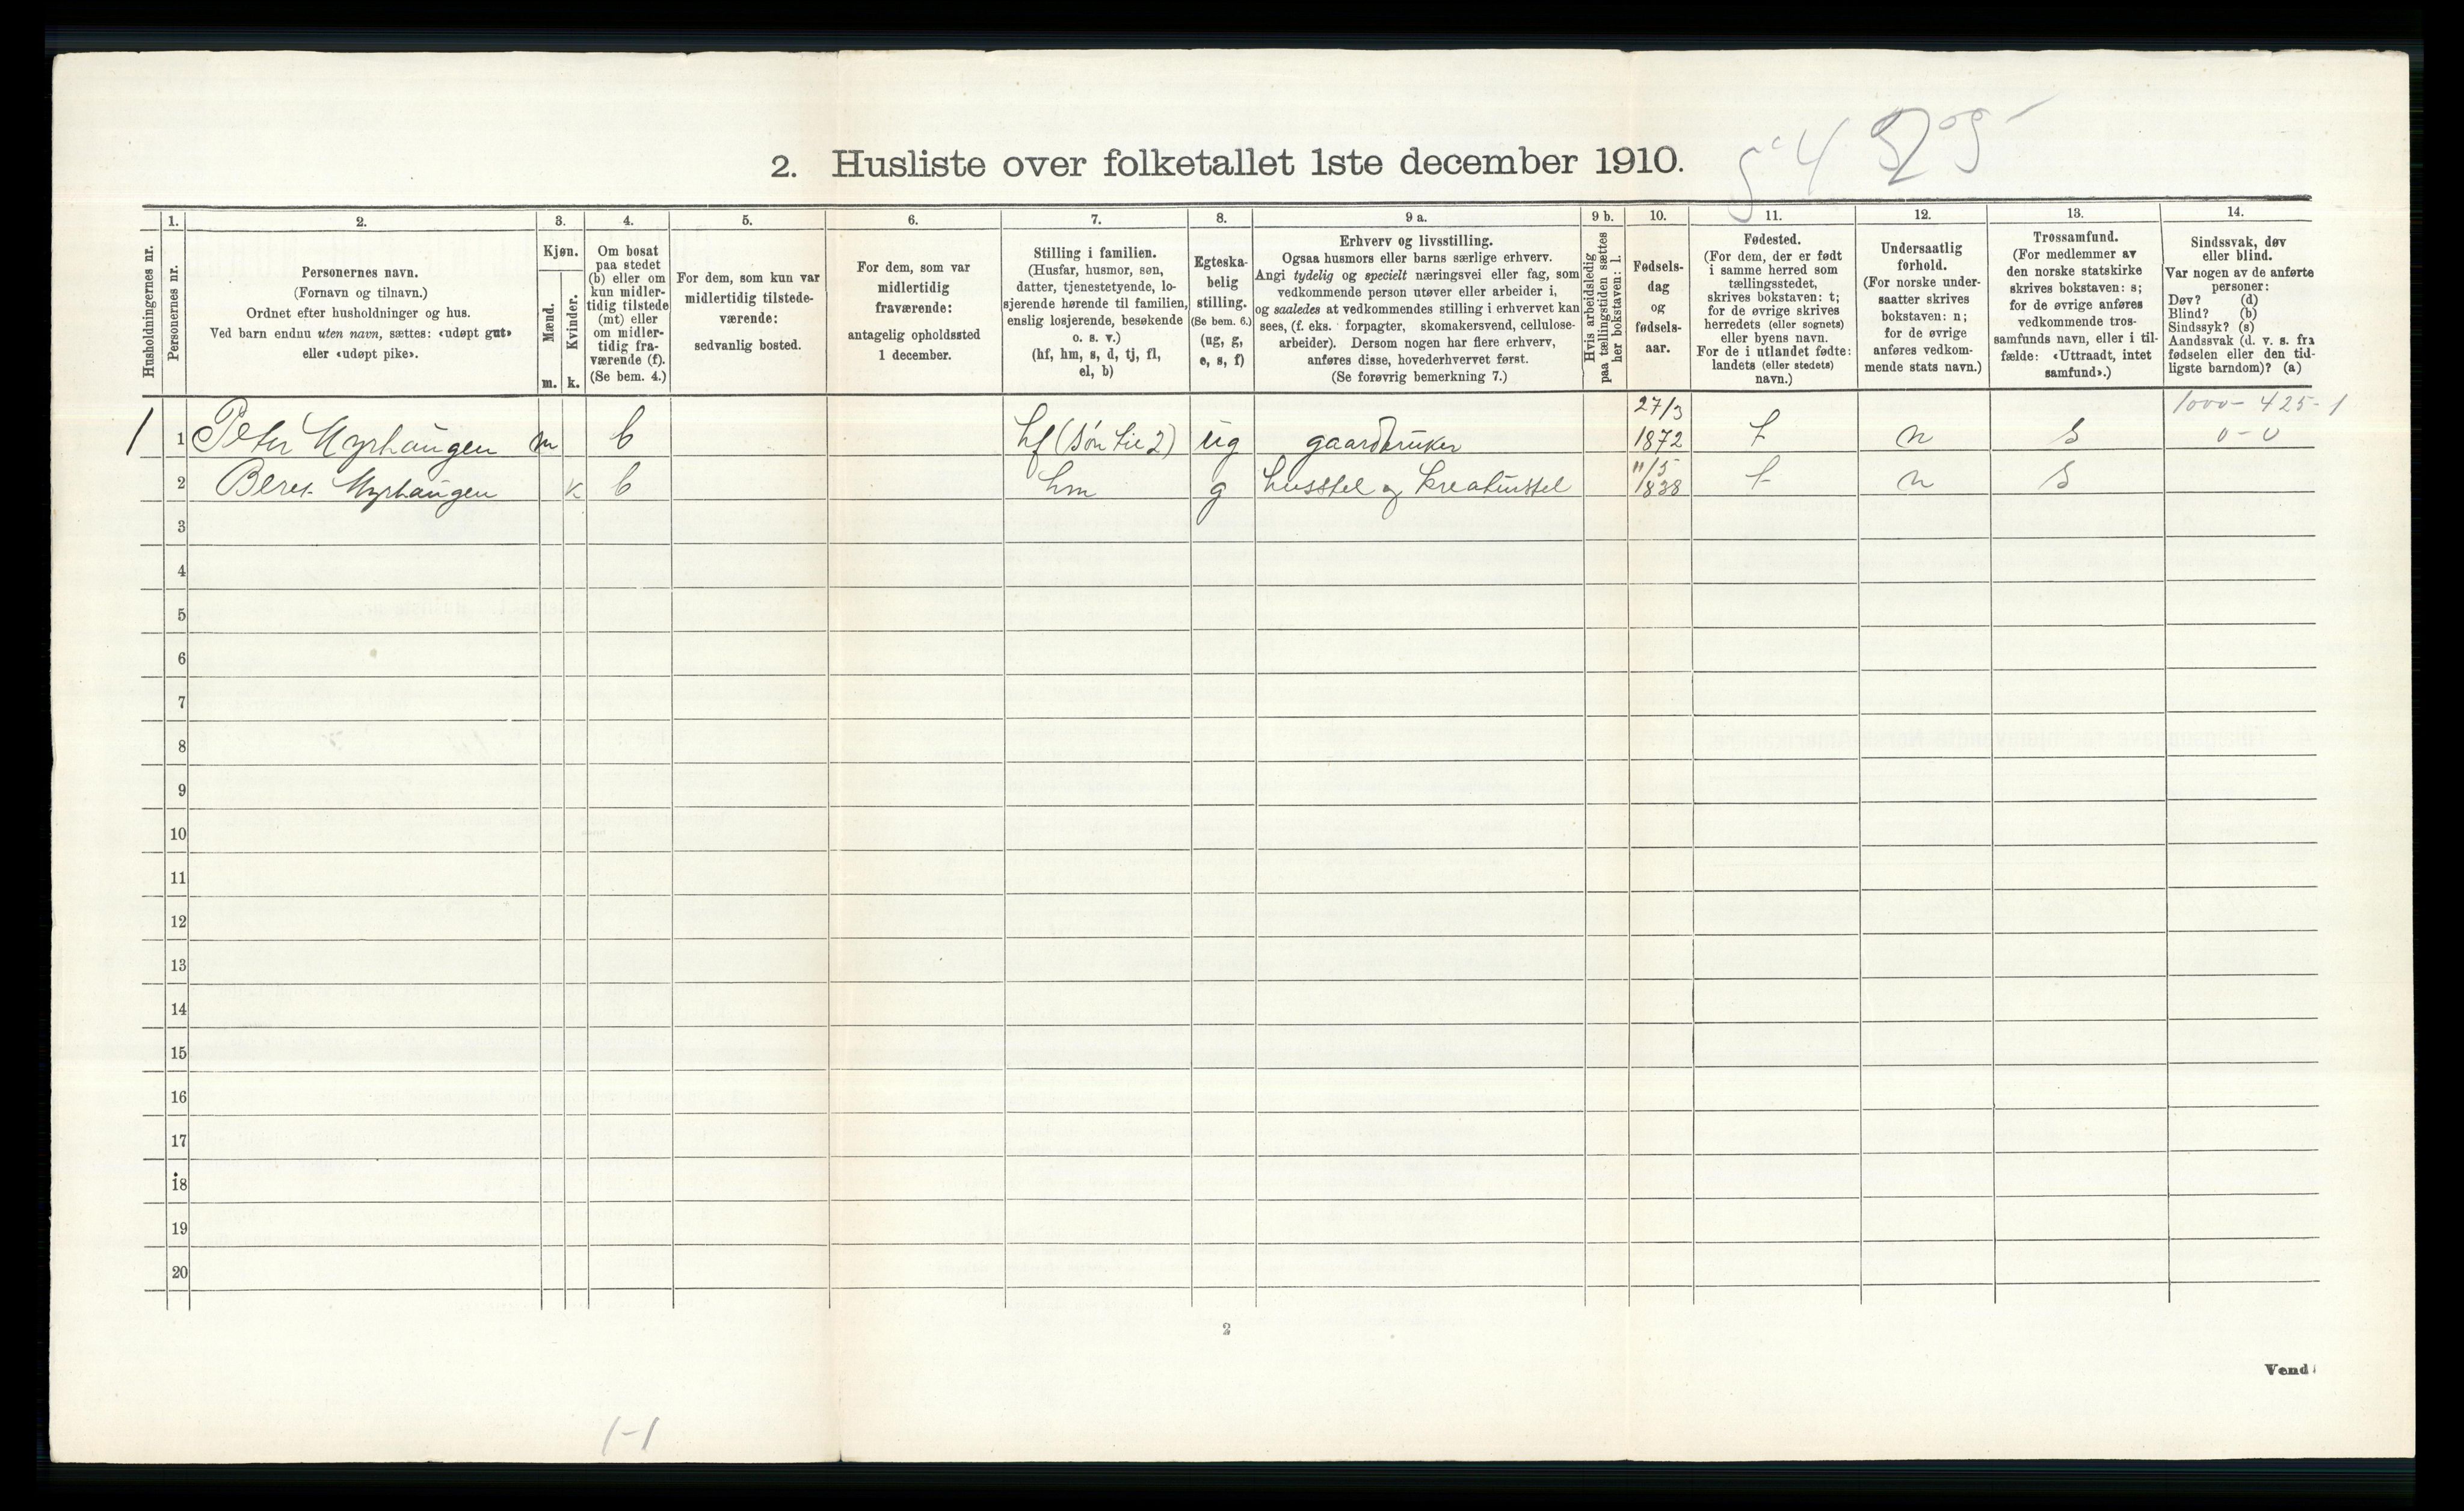 2. Husliste over folketallet 1ste december 1910.
1. 2. 3. 4. 5. 6. 7. 8. 9 a. 9 b. 10. 11. 12. 13. 14.
Husholdningernes nr.
Personernes nr.
Personernes navn.
(Fornavn og tilnavn.)
Ordnet efter husholdninger og hus.
Ved barn endnu uten navn, sættes: «udøpt gut»
eller «udøpt pike».
Kjøn.
Mænd.
m.
Kvinder.
k.
Om bosat
paa stedet
(b) eller om
kun midler-
tidig tilstede
(mt) eller
om midler-
tidig fra-
værende (f).
(Se bem. 4.)
For dem, som kun var
midlertidig tilstede-
værende:
sedvanlig bosted.
For dem, som var
midlertidig
fraværende:
antagelig opholdssted
1 december.
Stilling i familien.
(Husfar, husmor, søn,
datter, tjenestetyende, lo-
sjerende hørende til familien,
enslig losjerende, besøkende
o. s. v.)
(hf, hm, s, d, tj, fl,
el, b)
Egteska-
belig
stilling.
(Se bem. 6.)
(ug, g,
e, s, f)
Erhverv og livsstilling.
Ogsaa husmors eller barns særlige erhverv.
Angi tydelig og specielt næringsvei eller fag, som
vedkommende person utøver eller arbeider i,
og saaledes at vedkommendes stilling i erhvervet kan
sees, (f. eks. forpagter, skomakersvend, cellulose-
arbeider). Dersom nogen har flere erhverv,
anføres disse, hovederhvervet først.
(Se forøvrig bemerkning 7.)
Hvis arbeidsledig
paa tællingstiden sættes
her bokstaven: l.
Fødsels-
dag
og
fødsels-
aar.
Fødested.
(For dem, der er født
i samme herred som
tællingsstedet,
skrives bokstaven: t;
for de øvrige skrives
herredets (eller sognets)
eller byens navn.
For de i utlandet fødte:
landets (eller stedets)
navn.)
Undersaatlig
forhold.
(For norske under-
saatter skrives
bokstaven: n;
for de øvrige
anføres vedkom-
mende stats navn.)
Trossamfund.
(For medlemmer av
den norske statskirke
skrives bokstaven: s;
for de øvrige anføres
vedkommende tros-
samfunds navn, eller i til-
fælde: «Uttraadt, intet
samfund».)
Sindssvak, døv
eller blind.
Var nogen av de anførte
personer:
Døv? (d)
Blind? (b)
Sindssyk? (s)
Aandssvak (d. v. s. fra
fødselen eller den tid-
ligste barndom)? (a)
27/3 1000-425-1
1 1 Peter Myrhaugen m b hf (søn til 2) ug gaardbruker 1872 t n s 0-0
11/5
2 Beret Myrhaugen k b hm g husstel og kreaturstel 1838 t n s
3
4
5
6
7
8
9
10
11
12
13
14
15
16
17
18
19
20
2
Vend
1-1